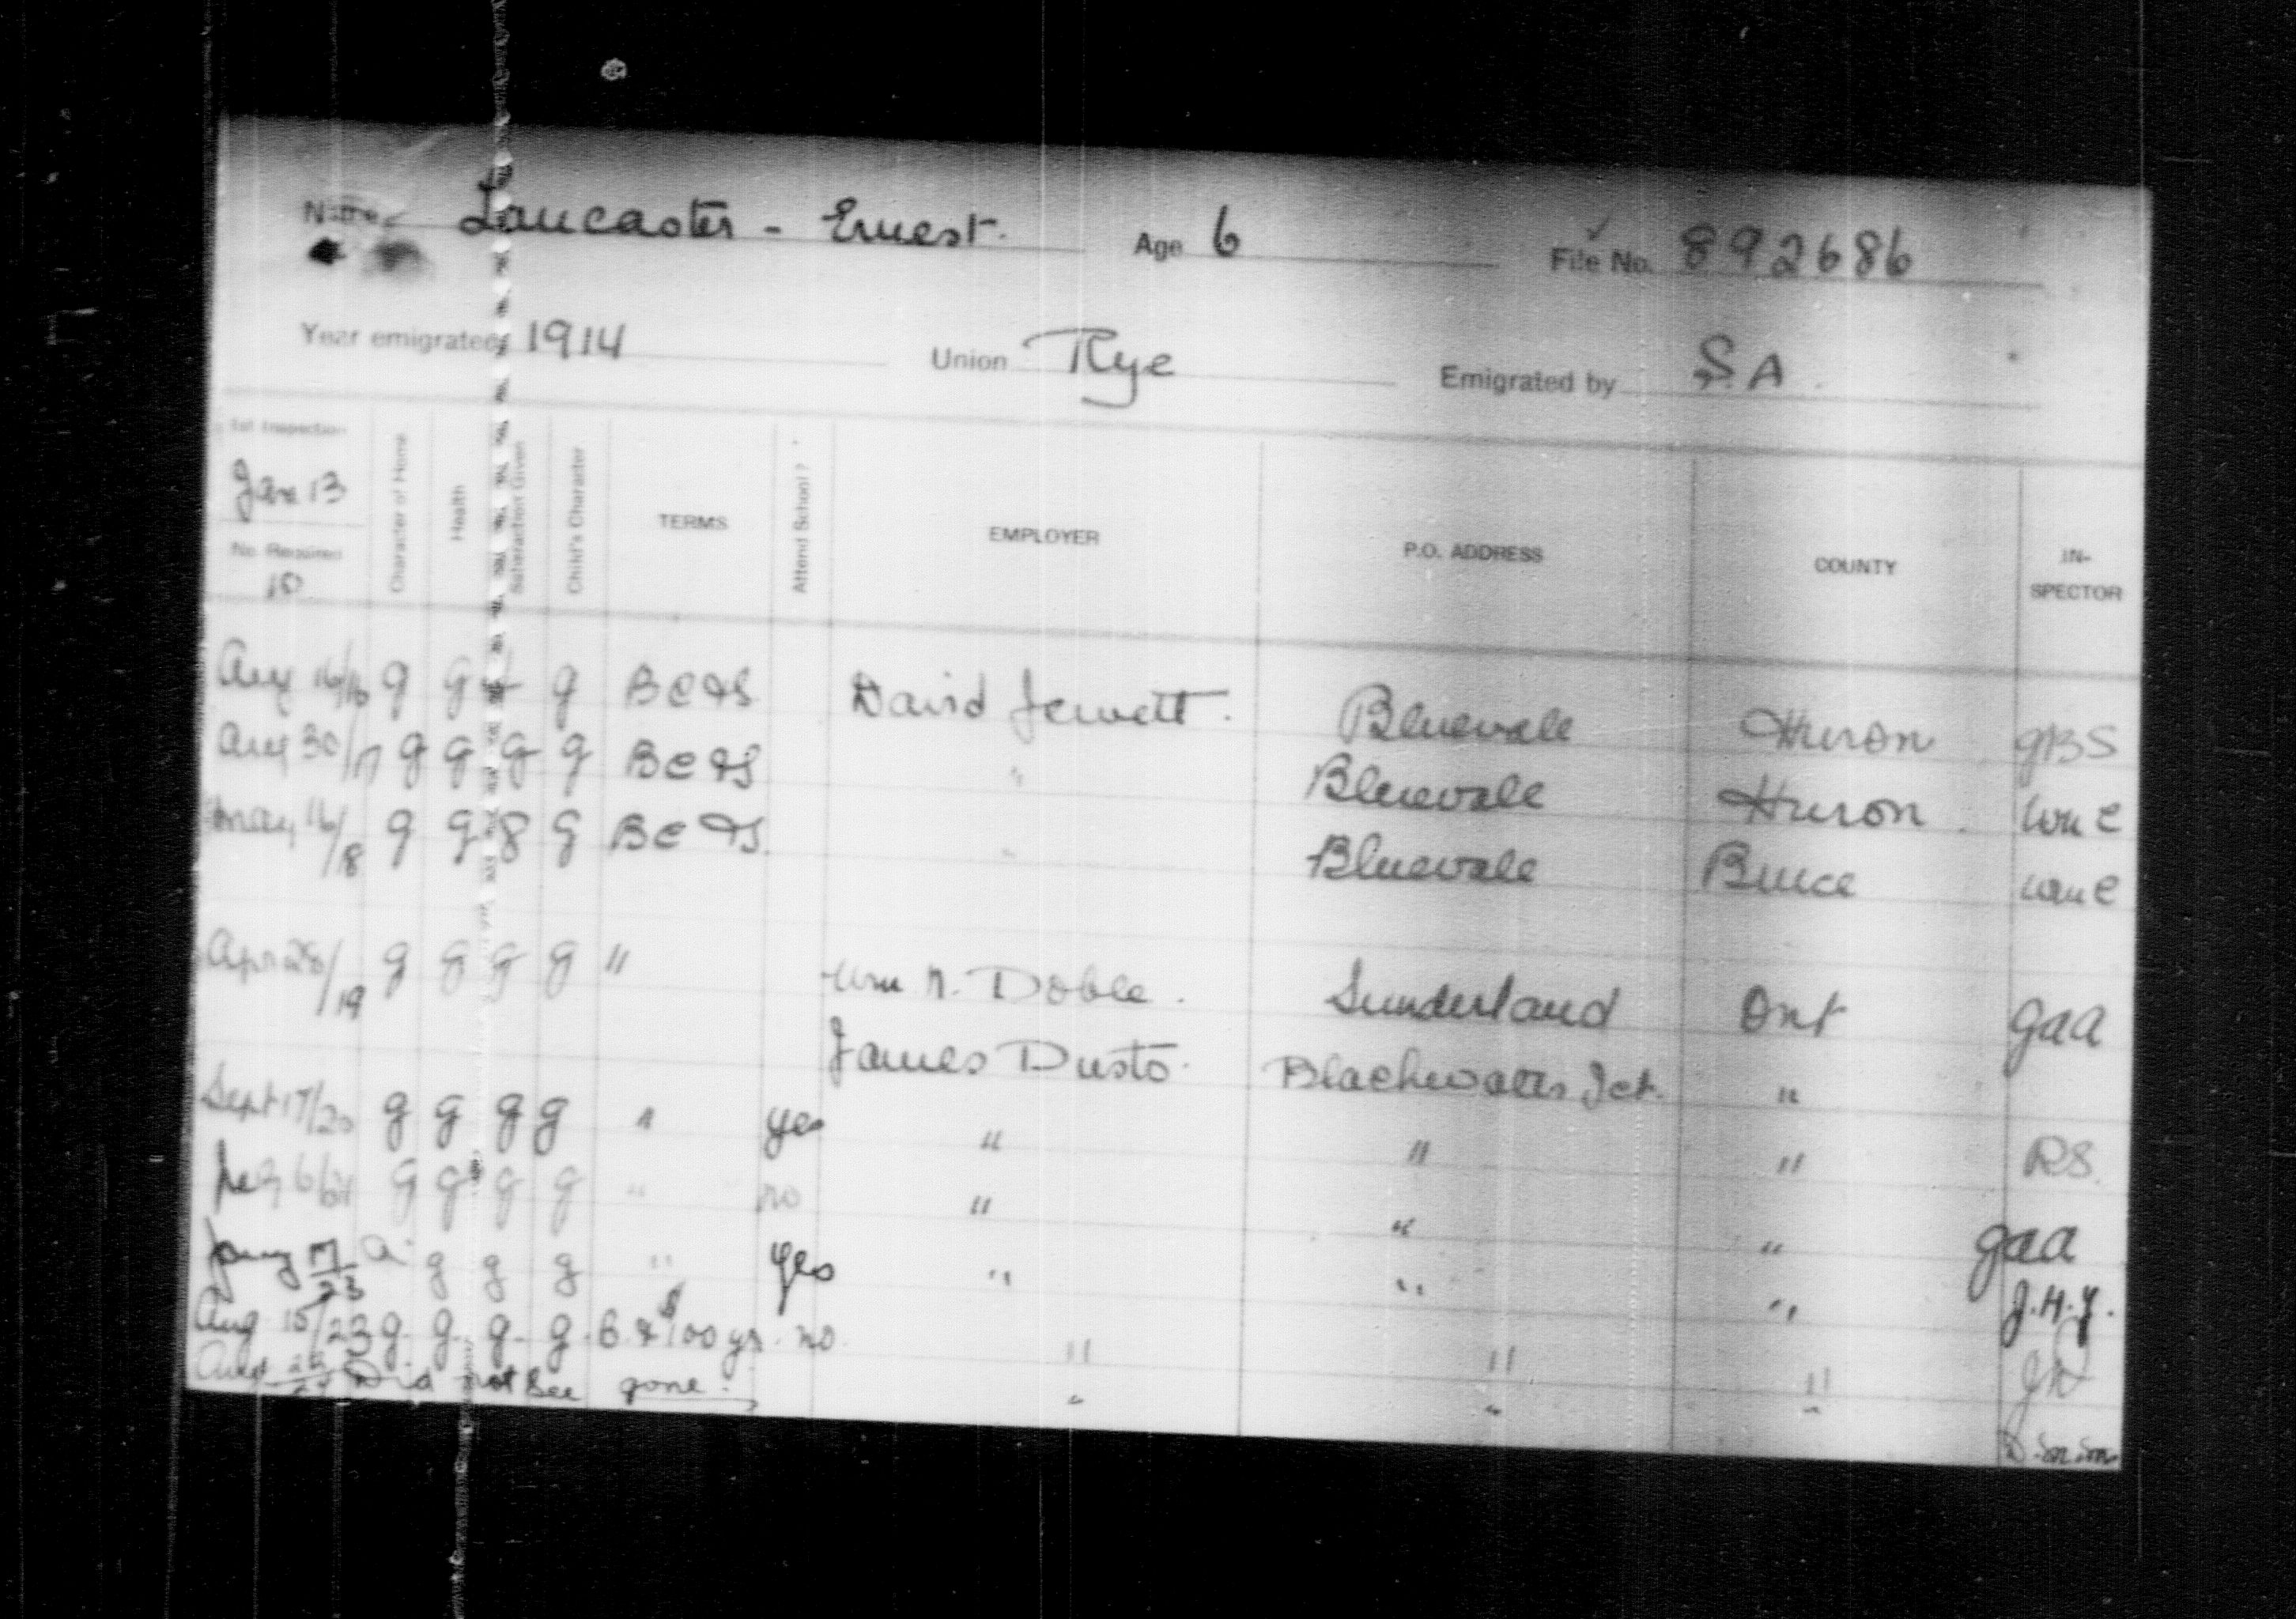 Name Lancaster - Ernest. Age 6 File No. 892686
Year emigrated 1914 Union Rye Emigrated by S.A.
1st Inspection Jan 13 No. Required 10 Character of Home Health Satisfaction Given Child's Character TERMS Attend School? EMPLOYER P.O. ADDRESS COUNTY IN-SPECTOR
Aug 16/16 g g g BC&S David Jewett. Bluevale Huron GBS
Aug 30/17 g g g g BC&S " Bluevale Huron Wm C
May 16/18 g g g g BC&S " Bluevale Bruce Wm C
Apr 28/19 g g g g " Wm N. Doble. Sunderland Ont GAA
James Dusto. Blackwater Jct. "
Sept 17/20 g g g g " yes " " " RS.
6/21 g g g g " no " " " GAA
Jany 17/23 a g g g " yes " " " J.H.Y.
Aug 15/23 g. g. g. g. B & $100 yr. no. " " "
Aug Did not see gone. " " "